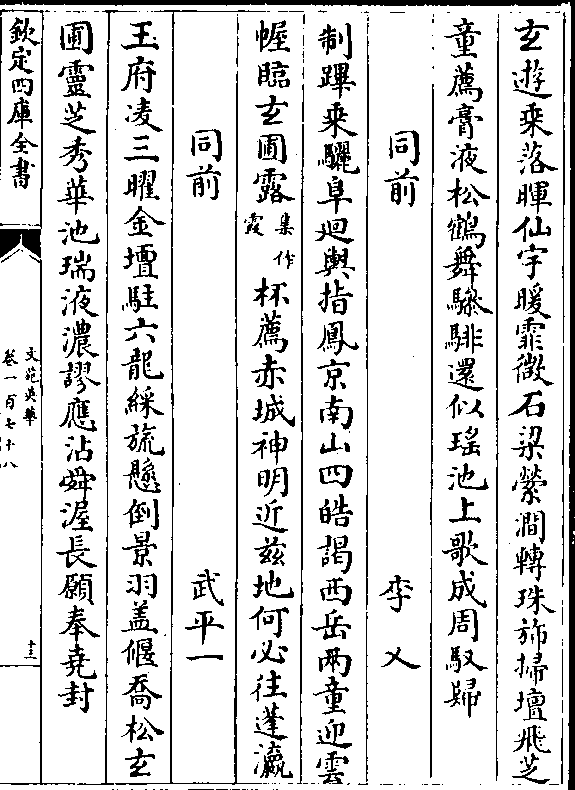 玄遊乗落暉仙宇曖霏微石梁縈澗轉珠斾掃壇飛芝
童薦膏液松鶴舞驂騑還似瑶池上歌成周馭歸
同前 李乂
制蹕乗驪阜迴輿指鳳京南山四皓謁西岳兩童迎雲
幄臨玄圃露集作霞杯薦赤城神明近兹地何必往蓬瀛
同前 武平一
玉府凌三曜金壇駐六龍綵旒懸倒景羽盖偃喬松玄
圃靈芝秀華池瑞液濃謬應沾舜渥長願奉堯封
欽定四庫全書
文苑英華
卷一百七十八
十三